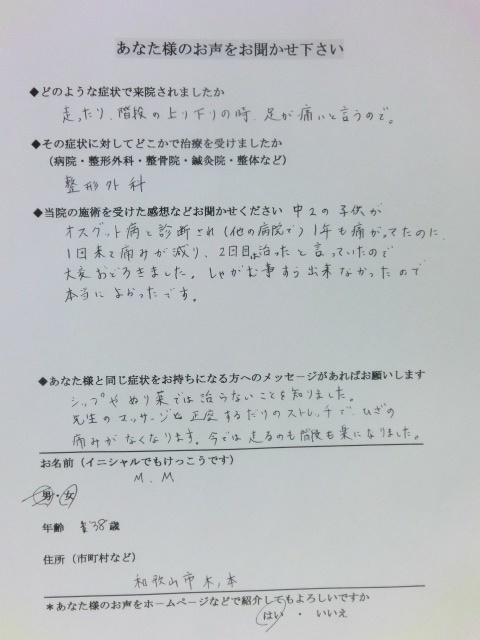 あなた様のお声をお聞かせ下さい
◆どのような症状で来院されましたか
走ったり、階段の上り下りの時、足が痛いと言うので。
◆その症状に対してどこかで治療を受けましたか
（病院・整形外科・整骨院・鍼灸院・整体など）
整形外科
◆当院の施術を受けた感想などお聞かせください 中2の子供が
オスグット病と診断され（他の病院で）1年も痛がってたのに、
1回来て痛みが減り、2回目は治ったと言っていたので
大変おどろきました。しゃがむ事すら出来なかったので
本当によかったです。
◆あなた様と同じ症状をお持ちになる方へのメッセージがあればお願いします
シップやぬり薬では治らないことを知りました。
先生のマッサージや正座するだけのストレッチで、ひざの
痛みがなくなります。今では走るのも階段も楽になりました。
お名前（イニシャルでもけっこうです）
M.M
男・女
年齢 38歳
住所（市町村など）
和歌山市木ノ本
＊あなた様のお声をホームページなどで紹介してもよろしいですか
はい ・ いいえ